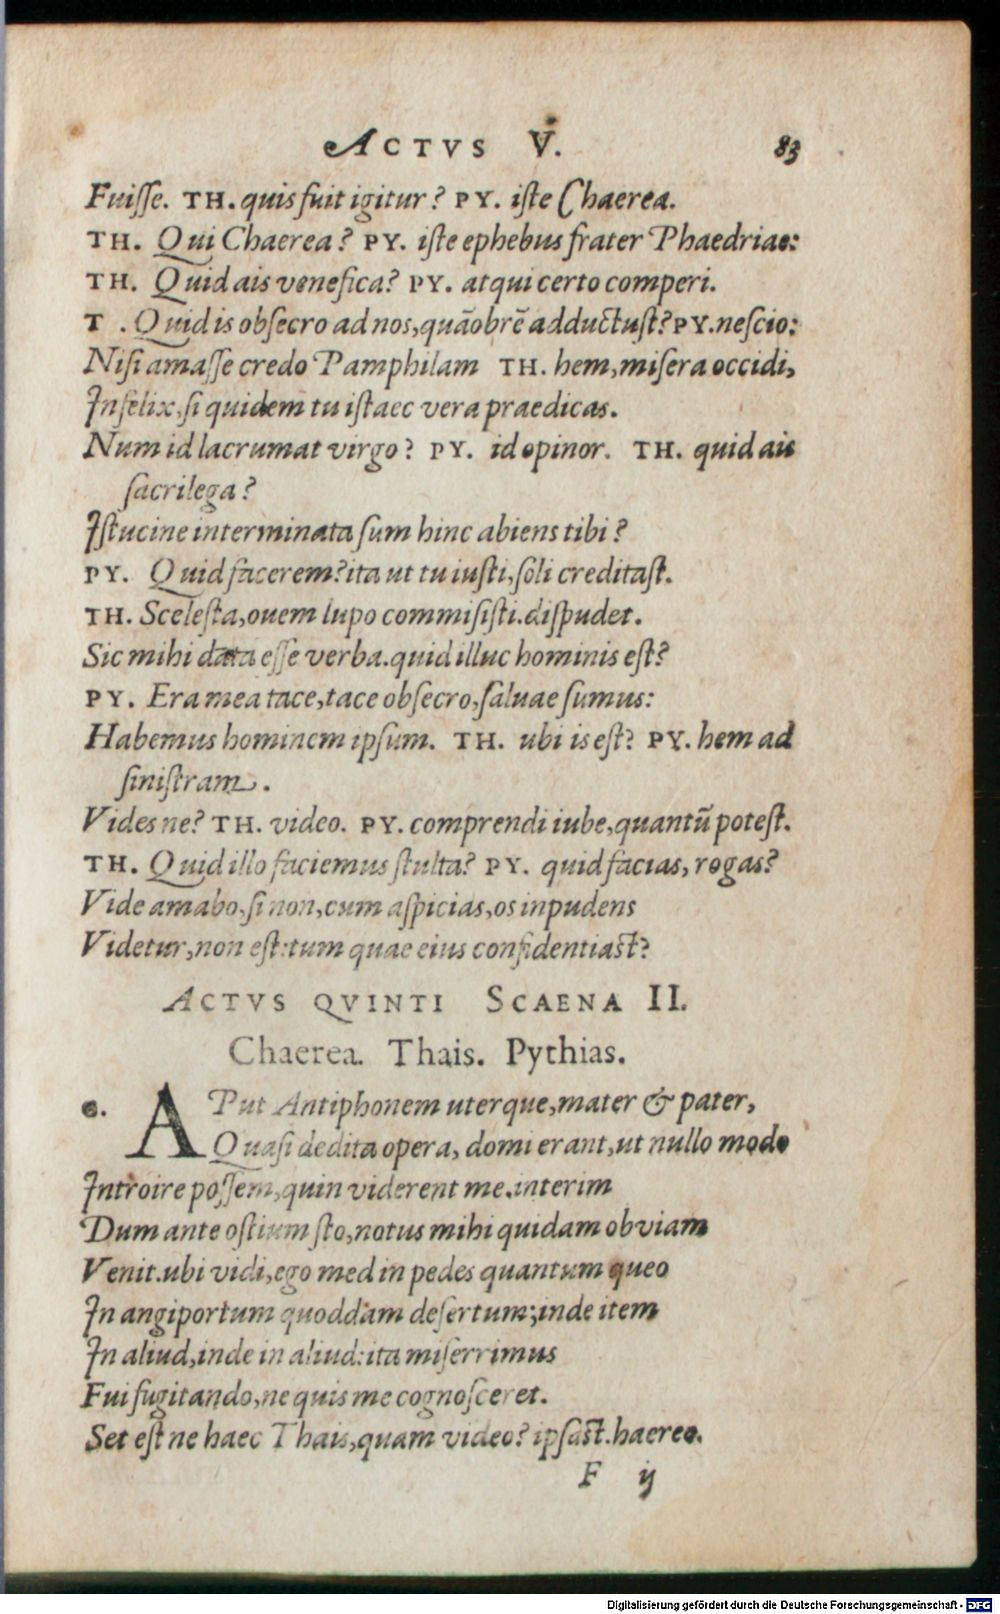 ACTVS V. 83
Fuiſſe. TH. quis fuit igitur? PY. iſte Chaerea.
TH. Qui Chaerea? PY. iſte ephebus frater Phaedriae:
TH. Quid ais venefica? PY. atqui certo comperi.
T . Quid is obſecro ad nos, quãobrẽ adductuſt? PY. neſcio:
Niſi amaſſe credo Pamphilam TH. hem, miſera occidi,
Infelix, ſi quidem tu iſtaec vera praedicas.
Num id lacrumat virgo? PY. id opinor. TH. quid ais
ſacrilega?
Iſtucine interminata ſum hinc abiens tibi?
PY. Quid facerem? ita ut tu iuſti, ſoli creditaſt.
TH. Sceleſta, ouem lupo commiſiſti. diſpudet.
Sic mihi data eſſe verba. quid illuc hominis eſt?
PY. Era mea tace, tace obſecro, ſaluae ſumus:
Habemus hominem ipſum. TH. ubi is eſt? PY. hem ad
ſiniſtram.
Vides ne? TH. video. PY. comprendi iube, quantũ poteſt.
TH. Quid illo faciemus ſtulta? PY. quid facias, rogas?
Vide amabo, ſi non, cum aſpicias, os inpudens
Videtur, non eſt: tum quae eius confidentiaſt?
ACTVS QVINTI SCAENA II.
Chaerea. Thais. Pythias.
C. APut Antiphonem uterque, mater & pater,
Quaſi dedita opera, domi erant, ut nullo modo
Introire poſſem, quin viderent me. interim
Dum ante oſtium ſto, notus mihi quidam obviam
Venit. ubi vidi, ego med in pedes quantum queo
In angiportum quoddam deſertum; inde item
In aliud, inde in aliud: ita miſerrimus
Fui fugitando, ne quis me cognoſceret.
Set eſt ne haec Thais, quam video? ipſaſt. haereo.
F ij
Digitalisierung gefördert durch die Deutsche Forschungsgemeinschaft - DFG